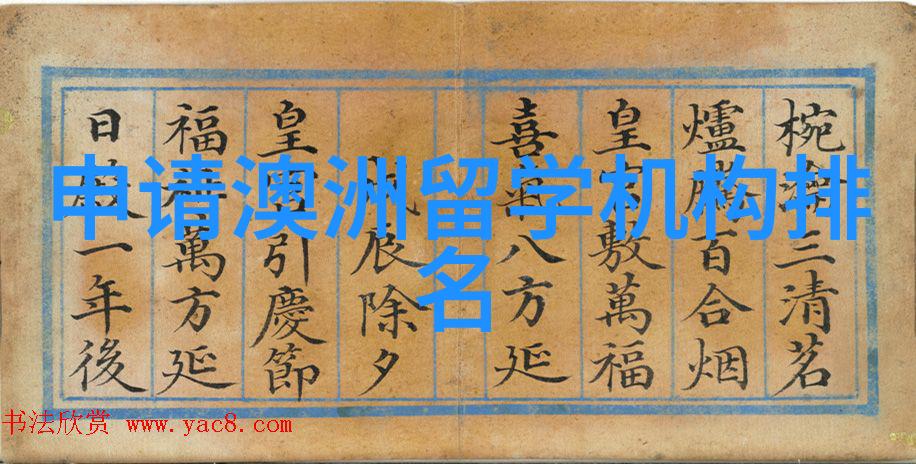 申请澳洲留学机构排
名
椀三清茗
爐百合烟
皇敷萬福
喜氣八方延
辰除夕
皇引慶節
福萬方延
日一年後
书法欣赏 www.yac8.com